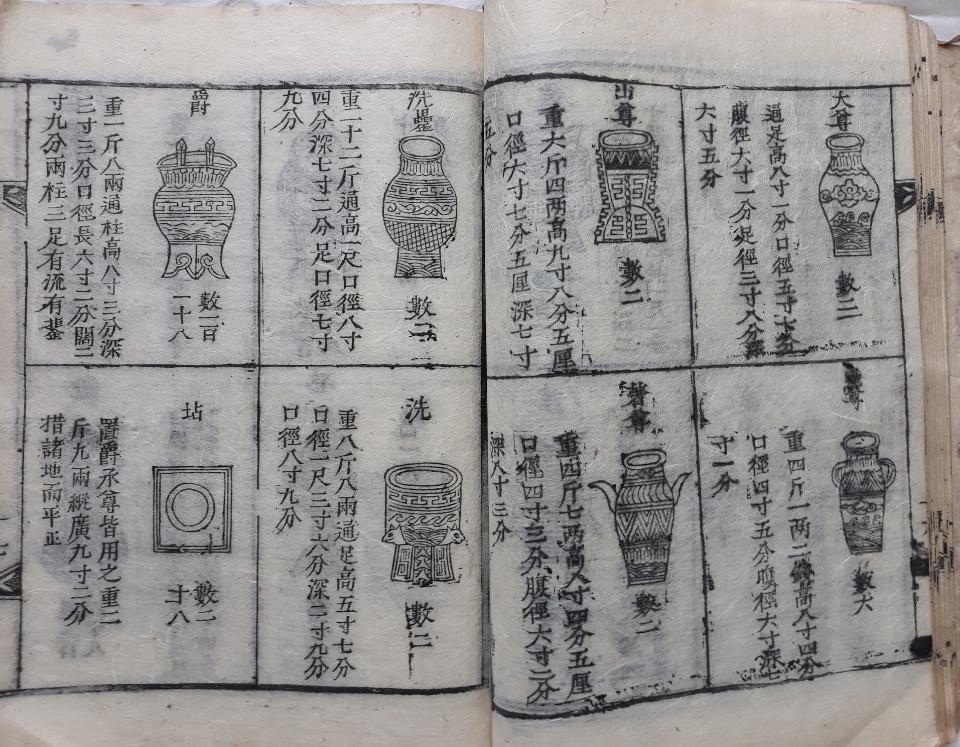 大尊
數二
通足高八寸一分口徑五寸七分
腹徑六寸一分足徑三寸八分深
六寸五分
山尊
數二
重六斤四兩高九寸八分五厘
口徑六寸七分五厘深七寸
五分
尊
數六
重四斤一兩二錢高八寸四分
口徑四寸五分腹徑六寸深七
寸一分
著尊
數二
重四斤七兩高八寸四分五厘
口徑四寸三分腹徑六寸二分
深八寸三分
洗罍
數二
重一十二斤通高一尺口徑八寸
四分深七寸二分足口徑七寸
九分
爵
數一百
一十八
重一斤八兩通柱高八寸三分深
三寸三分口徑長六寸二分闊二
寸九分兩柱三足有流有鋬
洗
數二
重八斤八兩通足高五寸七分
口徑一尺三寸六分深二寸九分
口徑八寸九分
坫
數二
十八
置爵承尊皆用之重二
斤九兩縱廣九寸二分
措諸地而平正